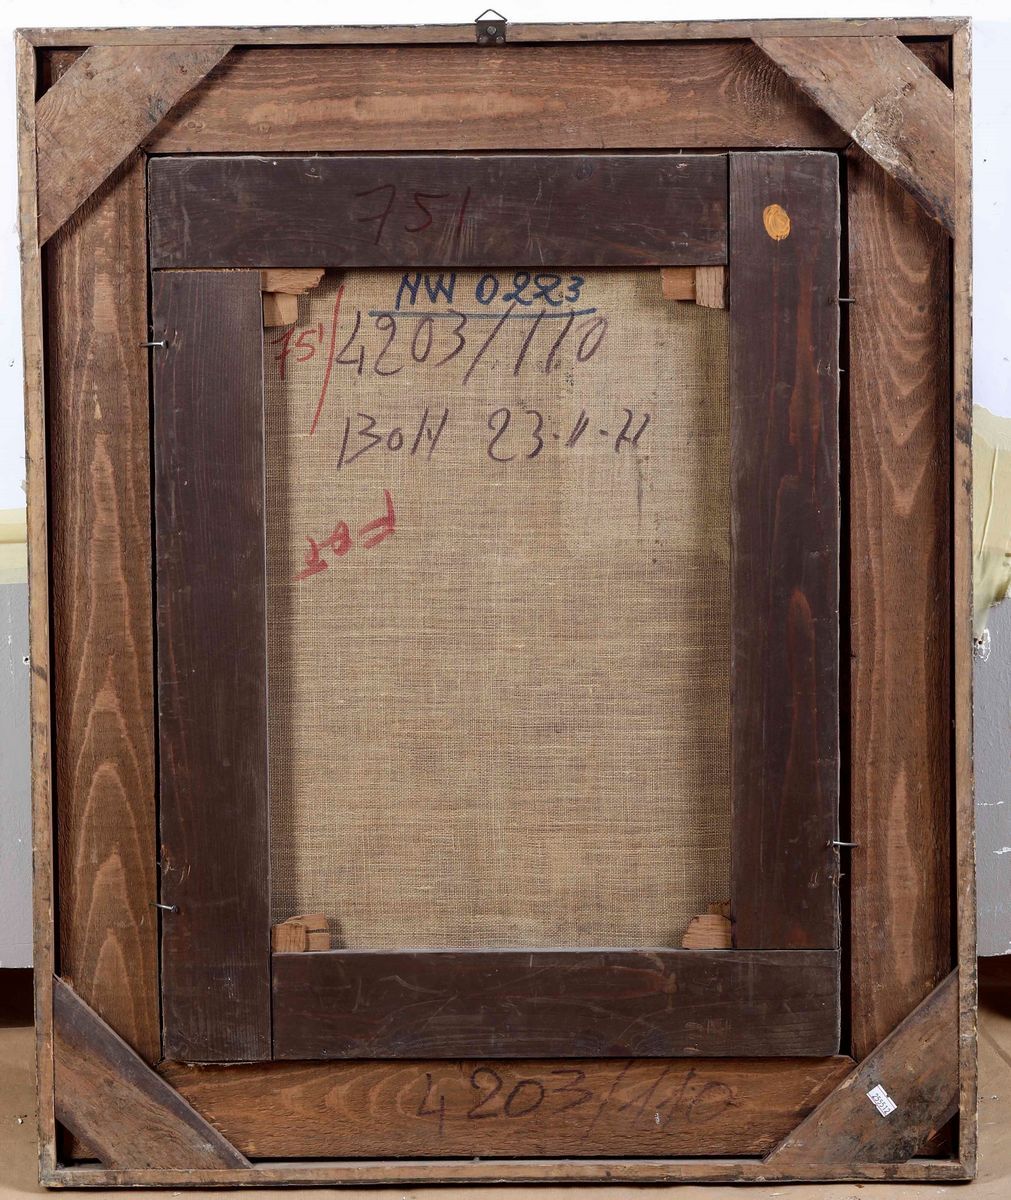 751
NW 0223
751 4203/110
BoH 23-11-71
4203/110